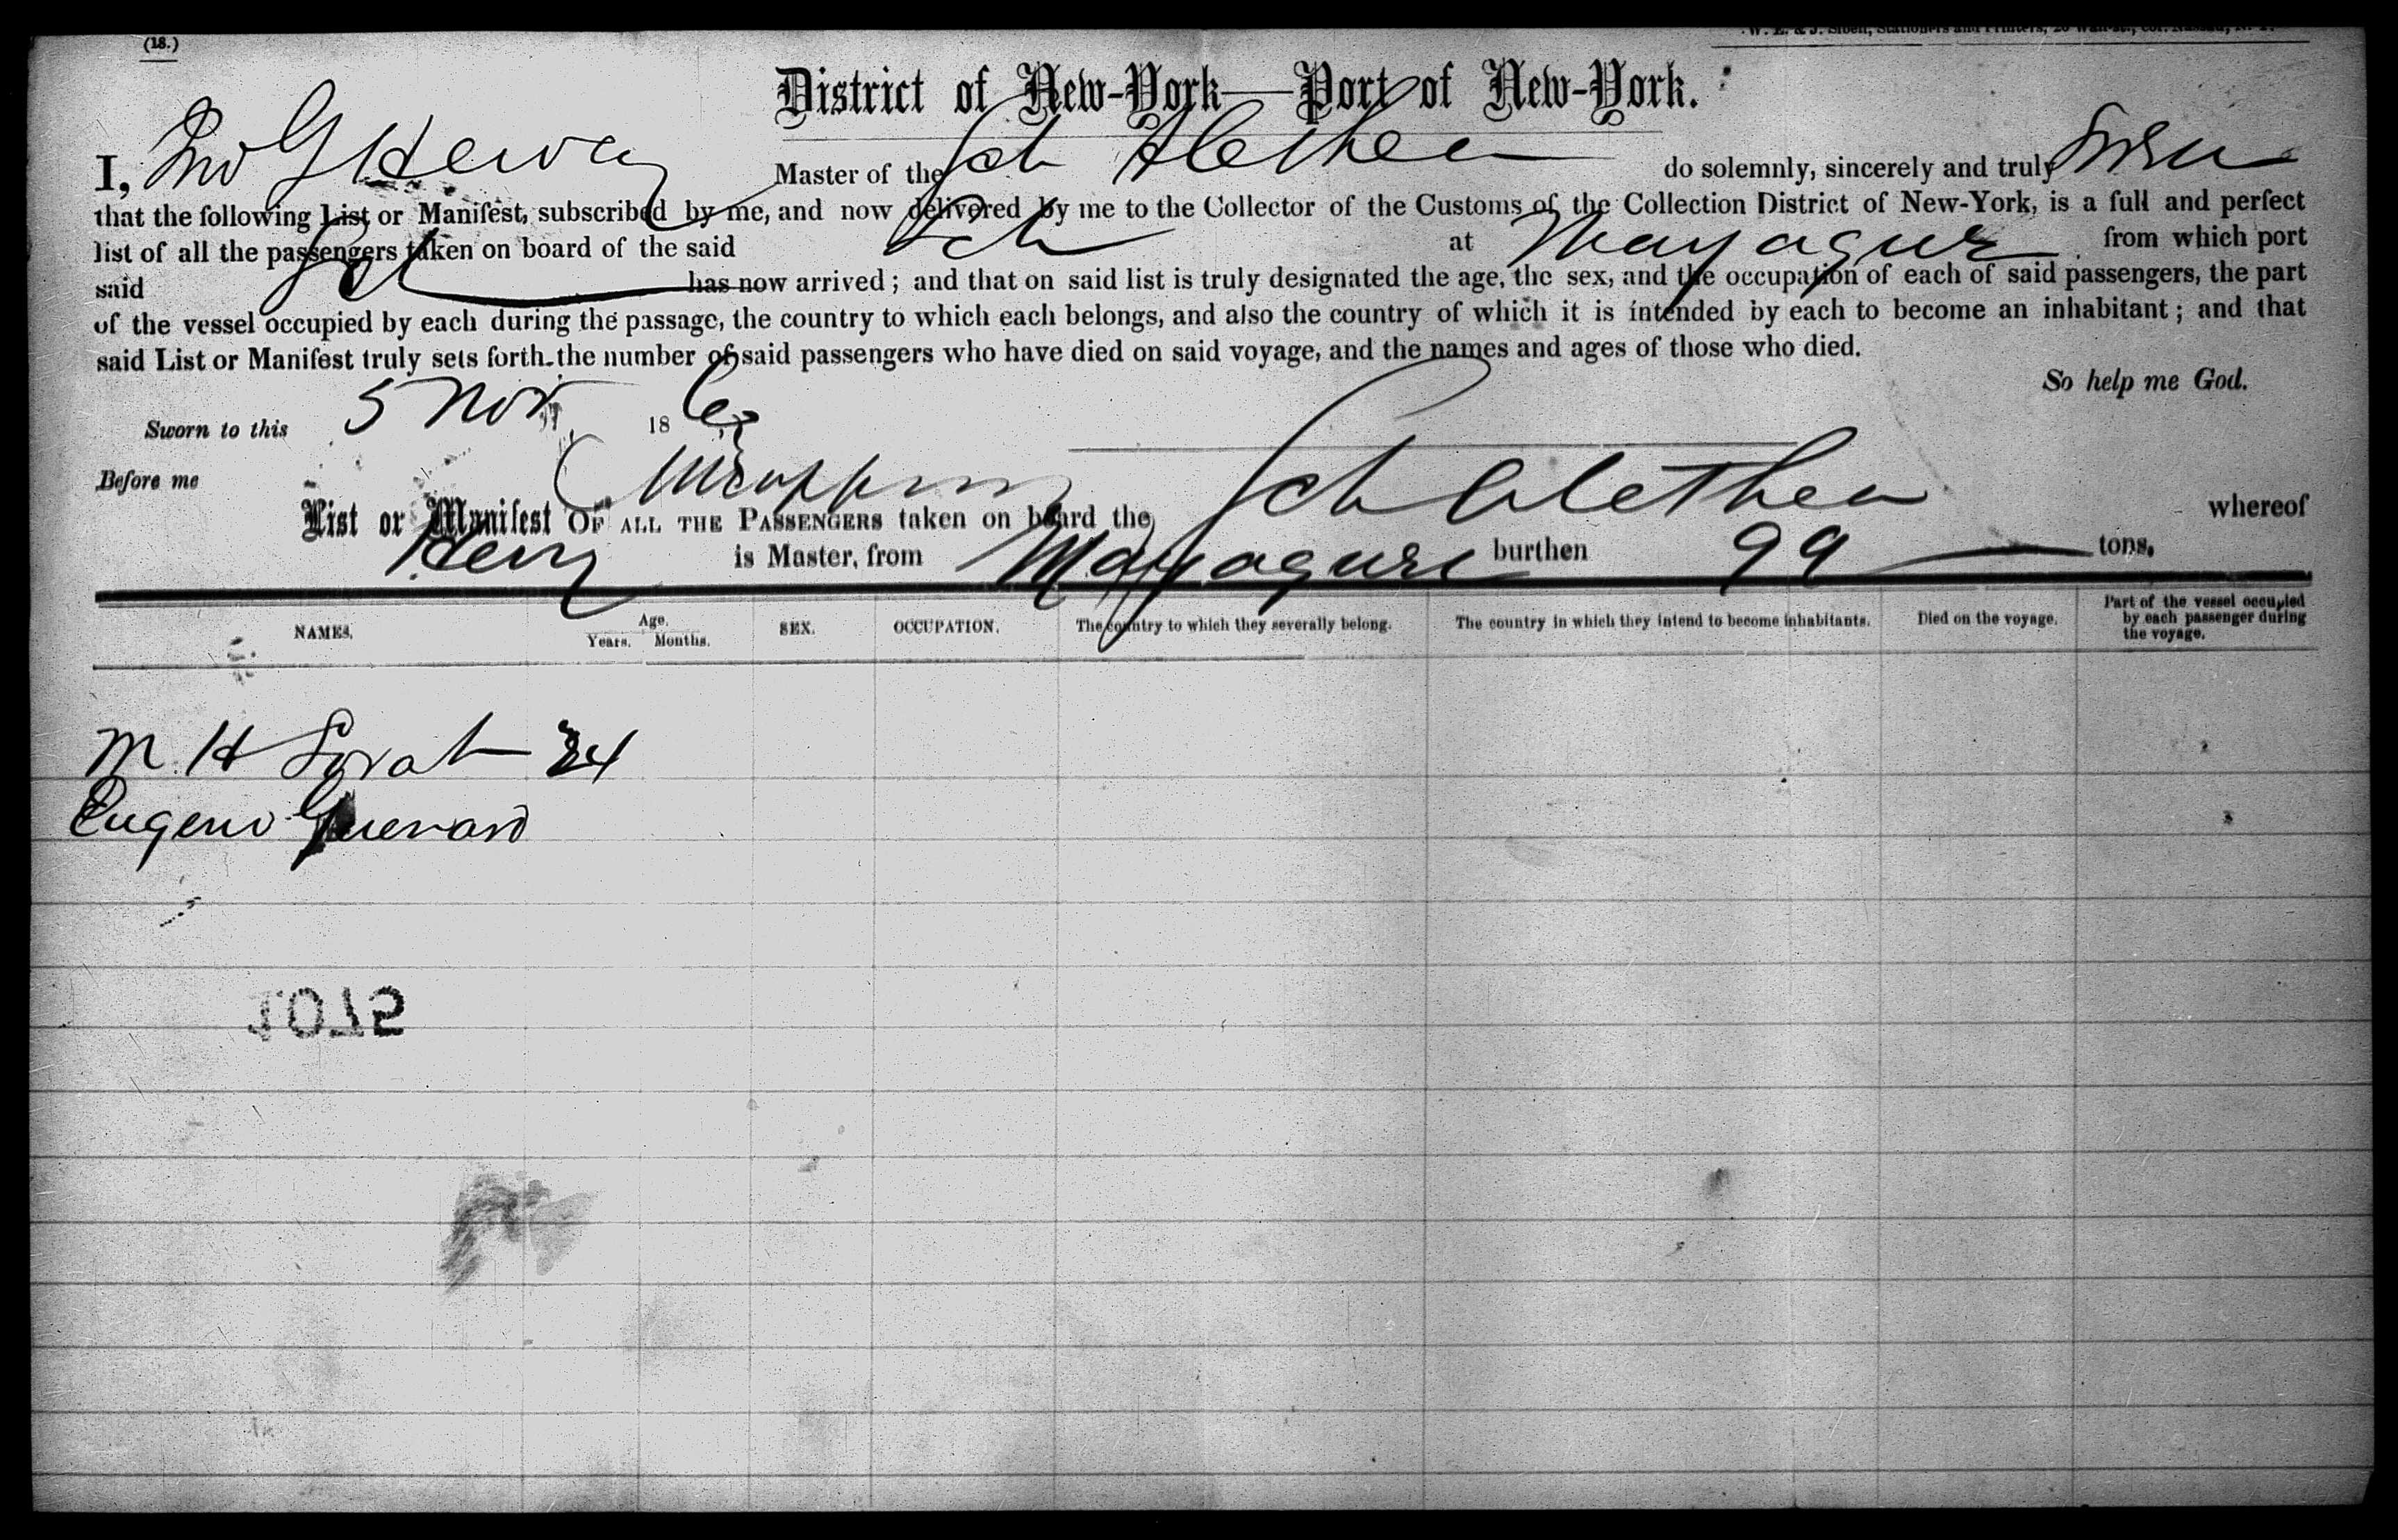 (18.)
W. E. & J. Sibell, Stationers and Printers, 20 Wall-st., cor. Nassau, N. Y.
District of New-York—Port of New-York.
I, Jno G Master of the Sch Alethea do solemnly, sincerely and truly swear
that the following List or Manifest, subscribed by me, and now delivered by me to the Collector of the Customs of the Collection District of New-York, is a full and perfect
list of all the passengers taken on board of the said Sch at Mayaguez from which port
said Sch has now arrived; and that on said list is truly designated the age, the sex, and the occupation of each of said passengers, the part
of the vessel occupied by each during the passage, the country to which each belongs, and also the country of which it is intended by each to become an inhabitant; and that
said List or Manifest truly sets forth the number of said passengers who have died on said voyage, and the names and ages of those who died.
So help me God.
Sworn to this 5 Nov 186
Before me
List or Manifest OF ALL THE PASSENGERS taken on board the Sch Alethea whereof
is Master, from Mayaguez burthen 99 tons.
NAMES. Age. Years. Months. SEX. OCCUPATION. The country to which they severally belong. The country in which they intend to become inhabitants. Died on the voyage. Part of the vessel occupied by each passenger during the voyage.
M. H 24
Eugene
1012